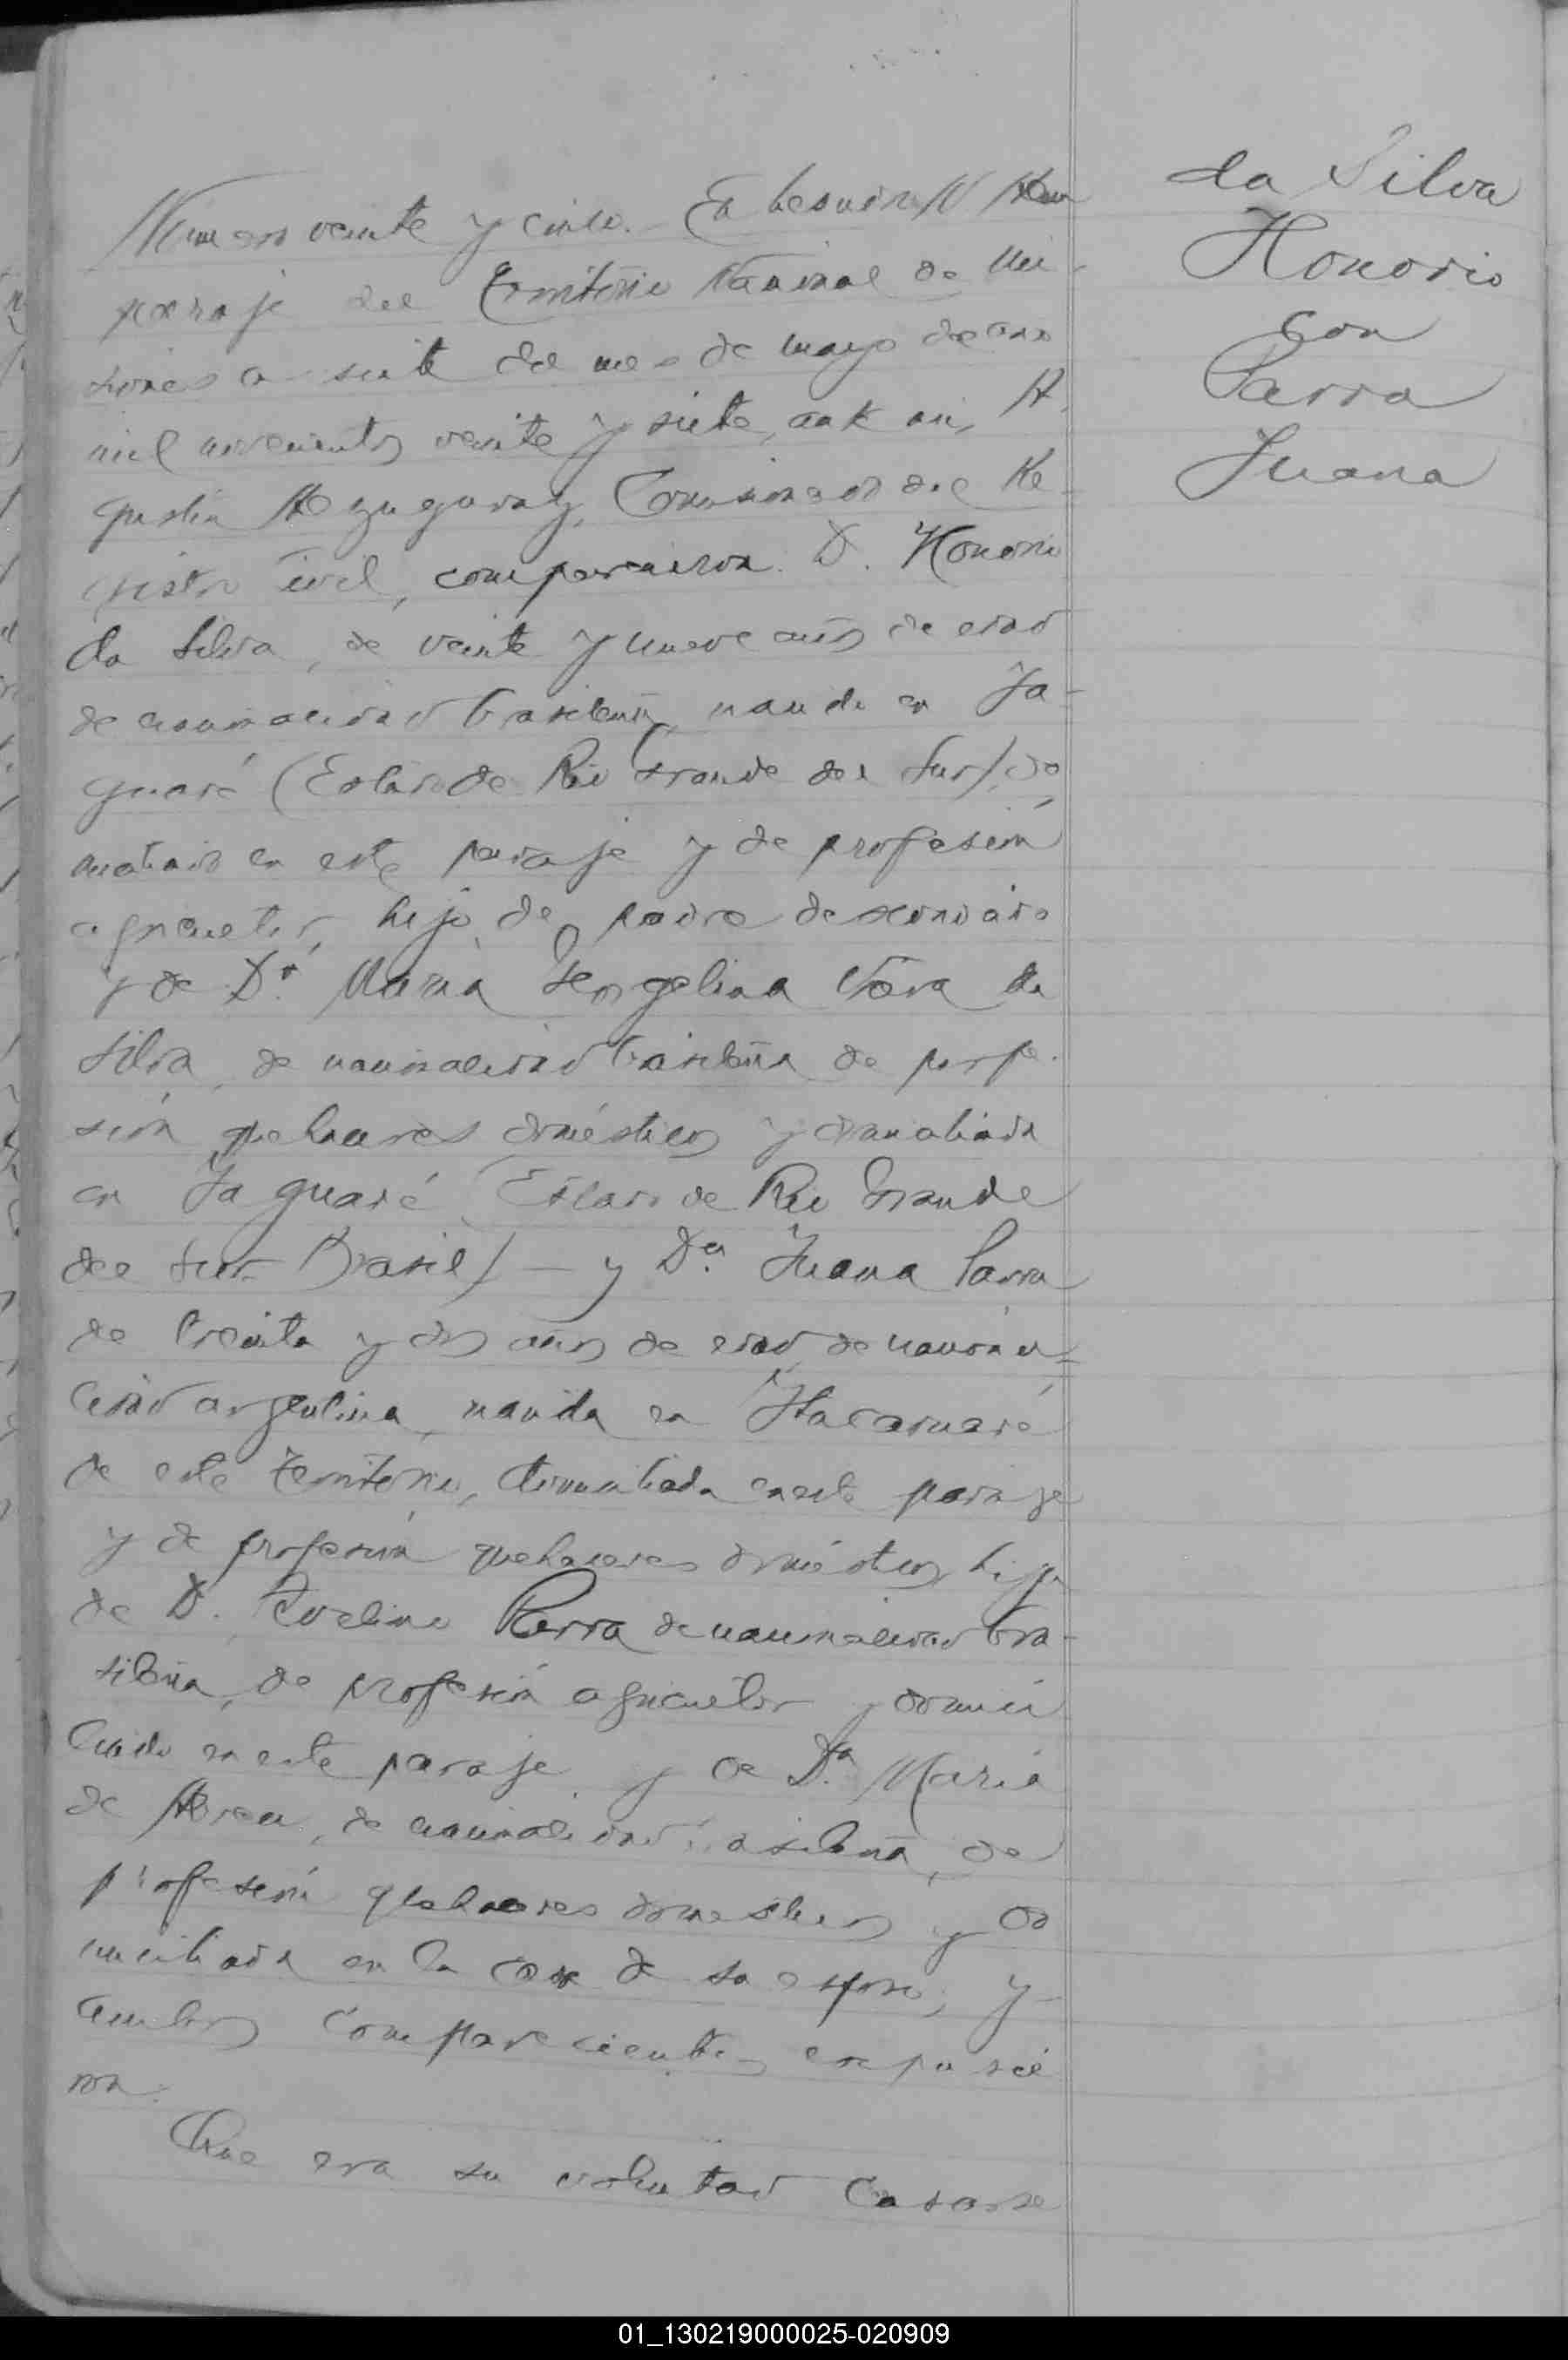 da Silva
Honorio
con
Parra
Juana
Numero veinte y cinco. En
paraje del Territorio Nacional de Mi-
siones a siete del mes de mayo de
mil novecientos veinte y siete, ante mi, A-
gustin Comisionado del Re-
gistro Civil, comparecieron D. Honorio
da Silva, de veinte y nueve años de edad
de nacionalidad brasileña, nacido en Ja-
guaré (Estado de Rio Grande del Sur), do
miciliado en este paraje y de profesión
agricultor, hijo de padre desconocido
y de Dª Maria da
Silva, de nacionalidad brasileña de profe-
sión quehaceres domésticos y domiciliada
en Jaguaré (Estado de Rio Grande
del Sur Brasil) — y Dª Juana Parra
de treinta y dos años de edad, de naciona-
lidad argentina, nacida en Itacaruaré
de este Territorio, domiciliada en este paraje
y de profesión quehaceres domésticos, hija
de D. Parra de nacionalidad bra-
sileña, de profesión agricultor y domici
liado en este paraje y de Dª Maria
de Abreu, de nacionalidad brasileña, de
profesión quehaceres domesticos y do
miciliada en la casa de su esposo; y
ambos comparecientes expusie
ron:
Que era su voluntad casarse
01_130219000025-020909